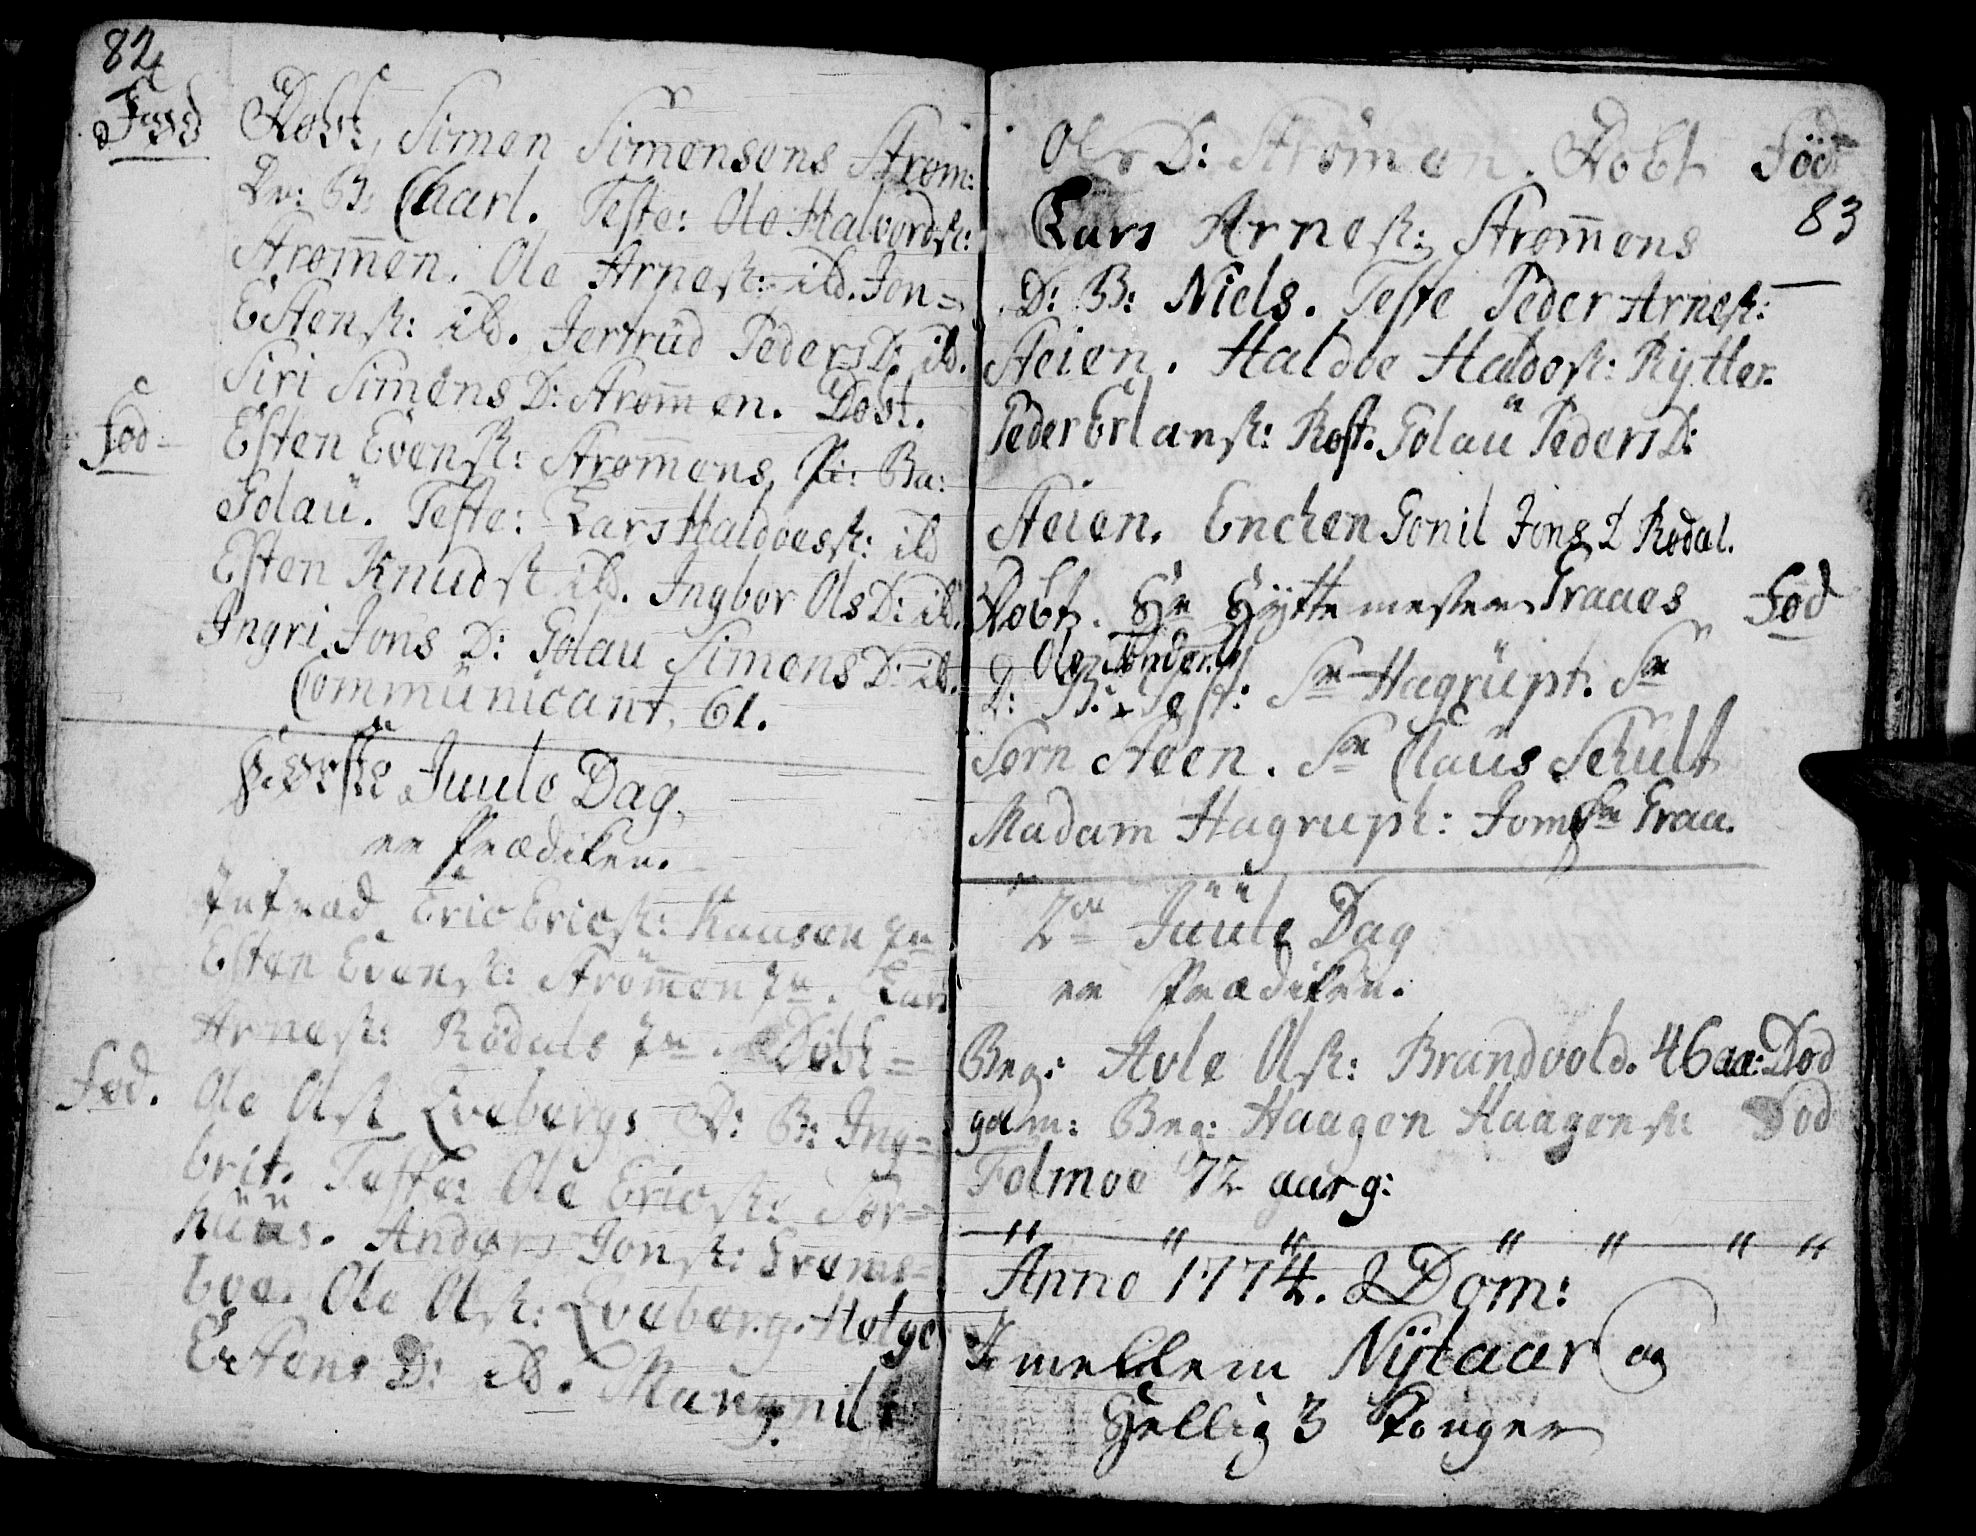 82
Fød Døbt, Simen Simensens Strøm:
Dr: B: Charl. Teste: Ole Halvordsk:
Strømen. Ole Arnesk: ibd. Jon=
Estensk: ibd. Jertrud PedersD: ibd.
Siri Simens D: Strømen. Døbt.
Fød Esten Evensk: Strømens, Pi: Ba:
Golau. Teste: Lars Haldoessk: ibd
Esten Knudsk ibd. Ingbor OlsD: ibd.
Ingri Jons D: Golau Simens D: ibd.
Communicant, 61.
Første Juule Dag,
er Prædiken.
Introd Eric Ericsk: Kaasen
Esten Evensk: Strømen Lars
Arnesk: Rødals Døbt=
Fød. Ole Olsk Evebergs D: B: Ing=
brit. Teste: Ole Ericsk: Sør=
huus. Anders Jonsk: Krems=
boe. Ole Olsk: Eveberg. Helge
Estens D: ibd. Marganilt
Ols D: Strømen. Døbt Fød
83
Lars Arnesk: Strømens
D: B: Niels. Teste Peder Arnesk:
Steien. Haldoe Haldosk: Rytter.
Peder Erlansk: Røst. Golau PedersD:
Steien. Enchen Gonil Jons D Rødal.
Døbt. Hr Hyttemester Graaes Fød
Ole Tonder
D: B: Test: Sr Hagrupt. Sr
Sørn Steen. Sr Claus Schult
Madam Hagrupk: Jomfr Graa.
2en Juule Dag
er Prædiken.
Beg: Avle Olsk: Brandvold. 46 aa: Død
gam: Beg: Haagen Haagensk: Død
Folmoe 72 aarg:
" " " " " " "
Anno 1774. Dom:
Imellem Nytaar og
Hellig 3 Konger